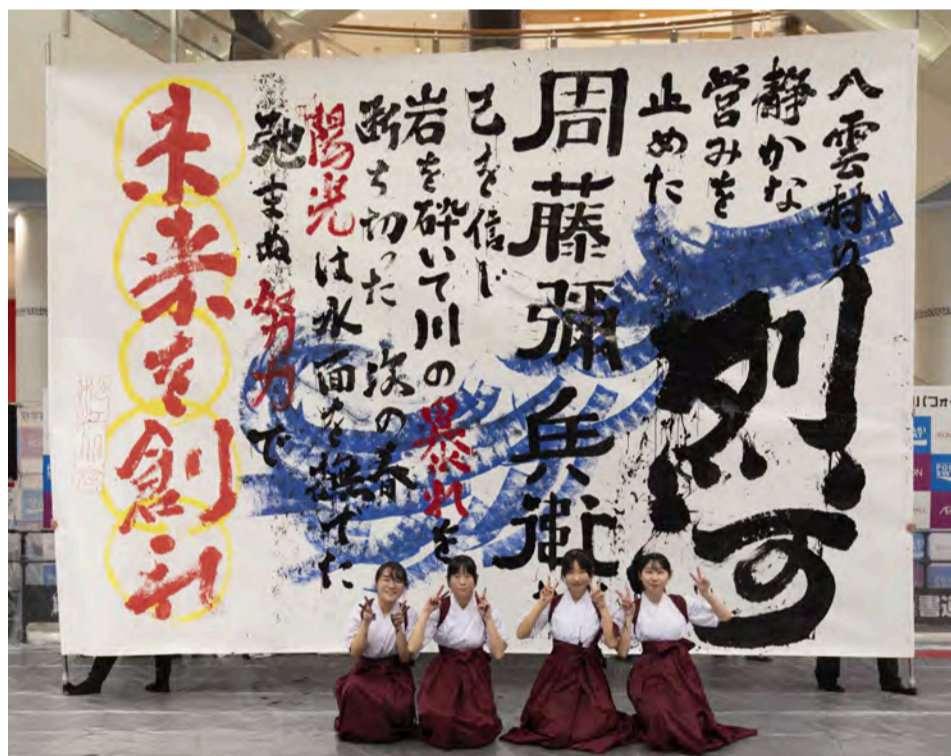 八雲村の
静かな
営みを
止めた
周藤彌兵衛
己を信じ
岩を砕いて川の暴れを
断ち切った 次の春
陽光は水面を撫でた
弛まぬ努力で
未来を創れ